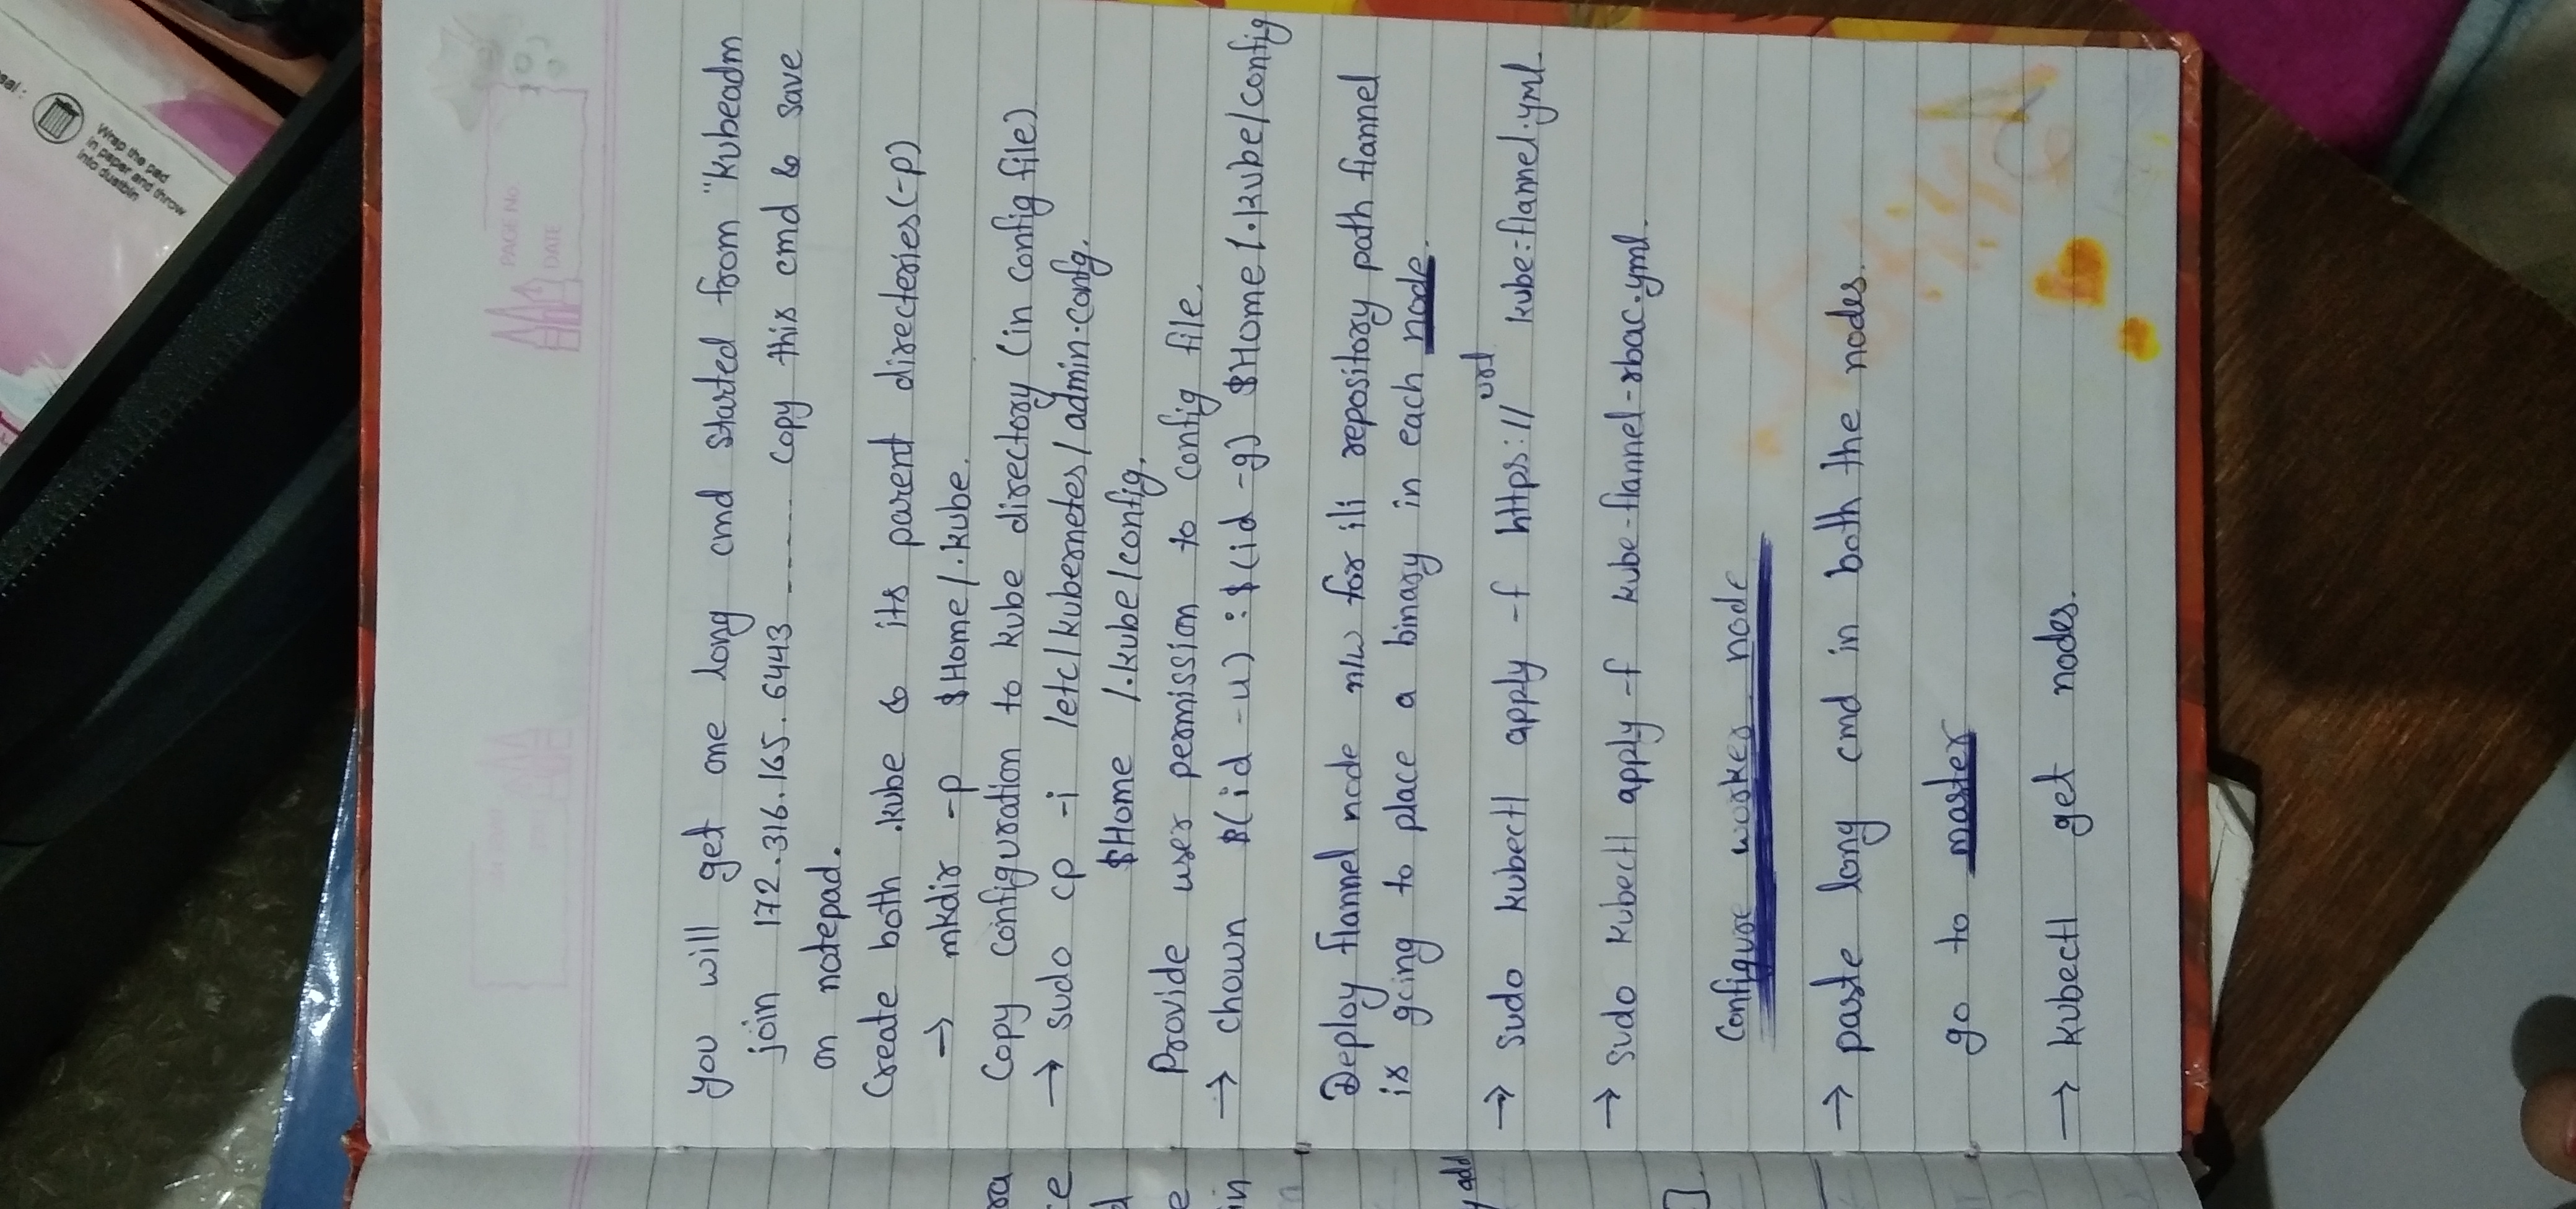 sal:
Wrap the pad
in paper and throw
into dustbin
PAGE No
DATE
you will get one long cmd started from "kubeadm
join 172.316.165.6443 ------ Copy this cmd & save
on notepad.
Create both .kube & its parent directeries(-p)
→ mkdir -p $Home/.kube.
Copy configuration to kube directory (in config file)
→ sudo cp -i /etc/kubernetes/admin.confg.
$Home /.kube/config.
Provide user permission to config file.
→ chown $(id -u) :$(id -g) $Home/.kube/config
Deploy flannel node n/w for ili repository path flannel
is going to place a binary in each node.
→ sudo kubectl apply -f https://url kube=flannel.yml
→ sudo kubectl apply -f kube-flannel-rbac.yml.
Configure worker node
→ paste long cmd in both the nodes.
go to master
→ kubectl get nodes.
ra
ce
d
e
in
y add
]